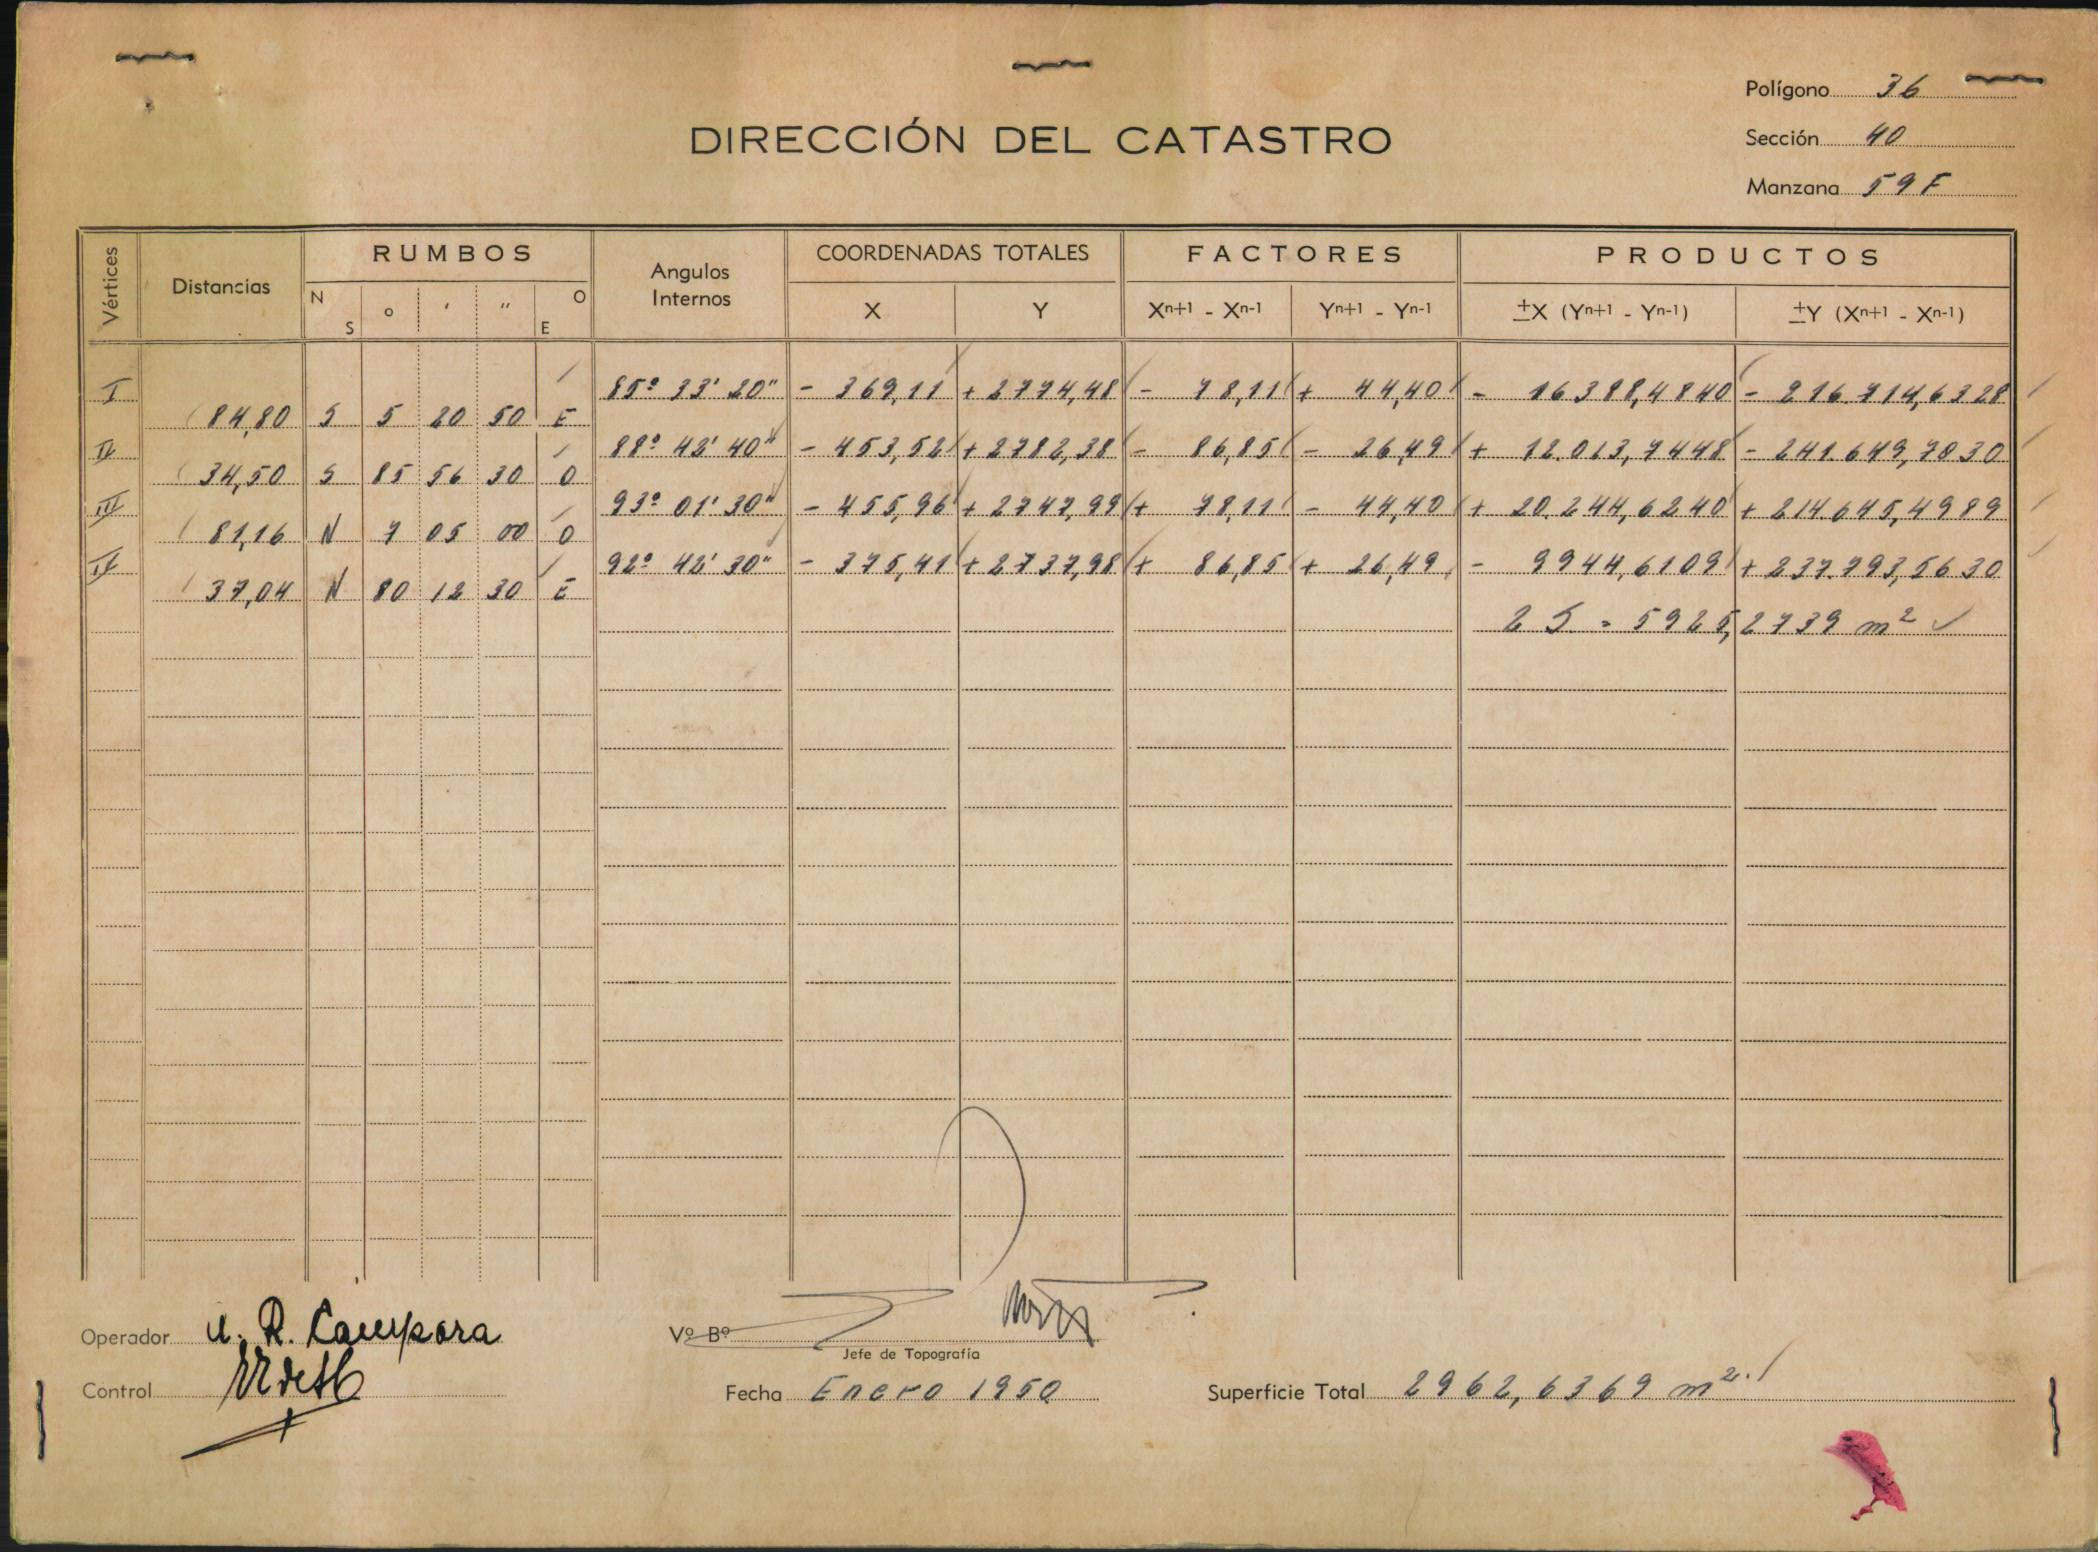 Polígono 36
DIRECCIÓN DEL CATASTRO
Sección 40
Manzana 59F
Vértices Distancias RUMBOS Angulos Internos COORDENADAS TOTALES FACTORES PRODUCTOS
N S o ' " O E X Y Xn+1 - Xn-1 Yn+1 - Yn-1 ±X (Yn+1 - Yn-1) ±Y (Xn+1 - Xn-1)
I 85º 33' 20" - 369,11 + 2774,48 - 78,11 + 44,40 - 16388,4840 - 216.714,6328
84,80 S 5 20 50 E
II 88º 42' 40" - 453,52 + 2782,38 - 86,85 - 26,49 + 12.013,7448 - 241.649,7030
34,50 S 85 56 30 O
III 93º 01' 30" - 455,96 + 2747,99 + 78,11 - 44,40 + 20.244,6240 + 214645,4989
81,16 N 7 05 00 O
IV 92º 42' 30" - 375,41 + 2737,98 + 86,85 + 26,49 - 9944,6109 + 237.793,5630
37,04 N 80 12 30 E
2 S = 5925,2739 m²
Operador R. Campora
Vº Bº
Jefe de Topografía
Control
Fecha Enero 1950
Superficie Total 2962,6369 m²